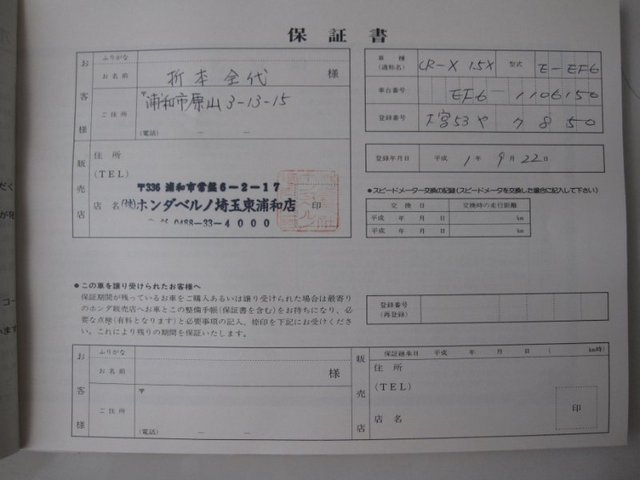 保証書
お客様
ふりがな
お名前 折本 全代 様
ご住所 〒浦和市原山3-13-15
(電話) － －
車種(通称名) CR-X 1.5X 型式 E-EF6
車台番号 EF6-1106150
登録番号 大宮53や7850
登録年月日 平成1年9月22日
販売店
住所
(TEL)
〒336 浦和市常盤6-2-17
店名 (株)ホンダベルノ埼玉東浦和店 印
0488-33-4000
●スピードメーター交換の記録(スピードメータを交換した場合に記入して下さい)
交換日 交換時の走行距離
平成 年 月 日 km
平成 年 月 日 km
●この車を譲り受けられたお客様へ
保証期間が残っているお車をご購入あるいは譲り受けられた場合は最寄り
のホンダ販売店へお車とこの整備手帳(保証書を含む)をお持ちになり、必
要な点検(有料となります)と必要事項の記入、捺印を下記にお受けくださ
い。これにより残りの期間を保証いたします。
登録番号(再登録)
お客様
ふりがな
お名前 様
ご住所 〒
(電話) － －
販売店
保証継承日 平成 年 月 日 ( km時)
住所
(TEL)
店名 印